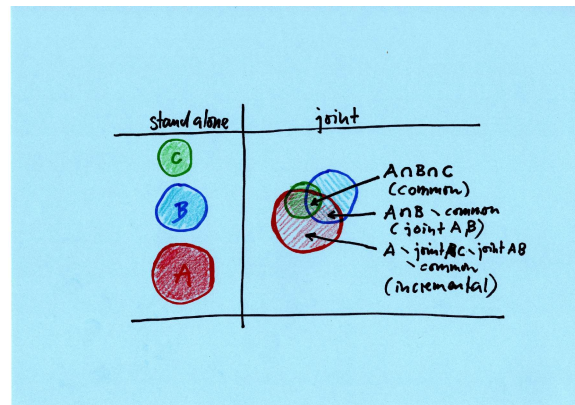 stand alone
joint
C
B
A
A∩B∩C
(common)
A∩B \ common
(joint AB)
A \ joint AC \ joint AB
\ common
(incremental)